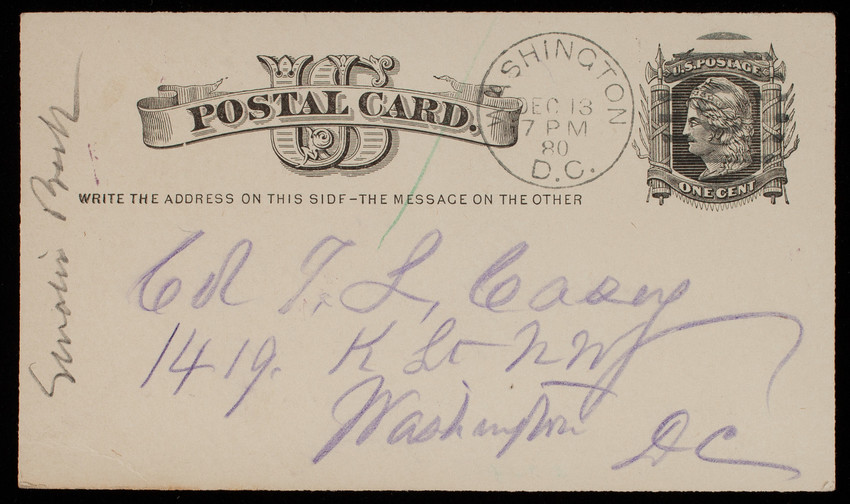 US
POSTAL CARD.
WASHINGTON
DEC 13
7 PM
80
D.C.
U.S. POSTAGE
ONE CENT
WRITE THE ADDRESS ON THIS SIDE-THE MESSAGE ON THE OTHER
Col T. L. Casey
1419. K St NW
Washington
DC
Senator